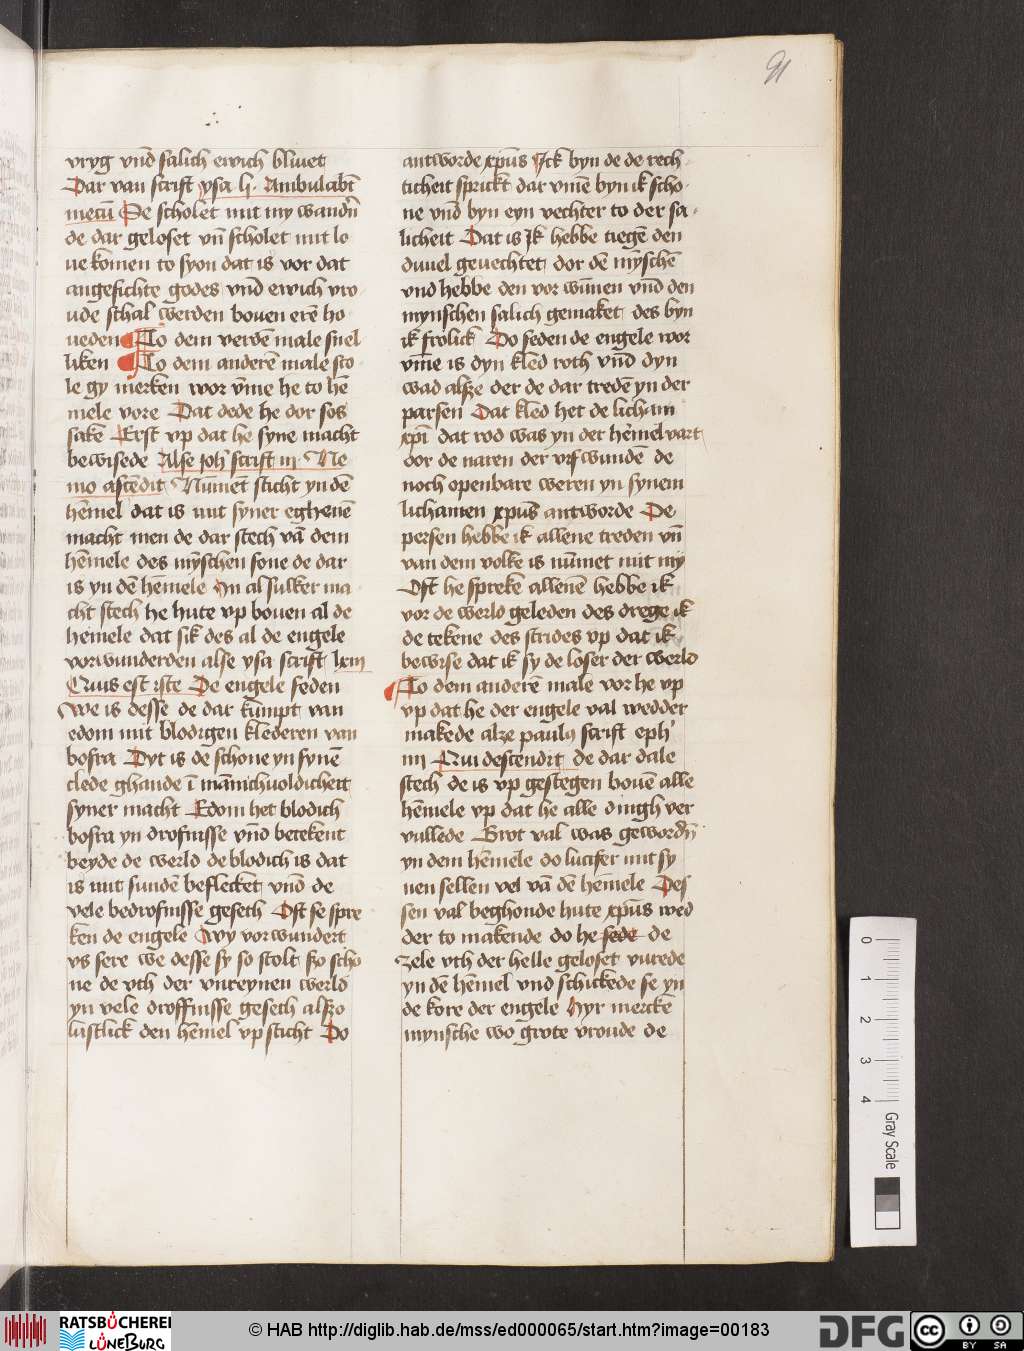 91
vryg vnd̄ salich ewich bliuet
Dar van scrift ysa li. Ambulabt̄
mecū De scholet mit my wandn̄
de dar geloset vn̄ scholet mit lo
ue komen to syon dat is vor dat
angesichte godes vnd̄ ewich vro
ude schal werden bouen erē ho
ueden To dem verdē male snel
liken To dem anderē male sco
le gy merken wor vm̄e he to hē
mele vore Dat dede he dor sos
sake Erst vp dat he syne macht
bewisede Alse joh̄ scrift iij Ne
mo ascēdit Num̄et sticht yn dē
hēmel dat is mit syner eghenē
macht men de dar stech vā dem
hēmele des mȳschen sone de dar
is yn dē hēmele Jn al sulker ma
cht stech he hute vp bouen al de
hēmele dat sik des al de engele
vorwunderden alse ysa scrift lxiij
Quis est iste De engele seden
We is desse de dar kūmpt van
edom mit blodigen klederen van
bosra Dyt is de schone yn synē
clede ghande ī mānichuoldicheit
syner macht Edom het blodich
bosra yn drofnisse vnd̄ betekent
beyde de werld de blodich is dat
is mit sundē beflecket vnd̄ de
vele bedrofnisse gesech Oft se spre
ken de engele Wy vorwundert
vs sere we desse sy so stolt szo scho
ne de vth der vnreynen werld
yn vele droffnisse gesech alszo
lustlick den hēmel vp sticht Do
antworde xpūs Jck byn de de rech
ticheit sprickt dar vm̄e byn ik scho
ne vnd̄ byn eyn vechter to der sa
licheit Dat is Jk hebbe tiegē den
duuel geuechtet dor dē mȳschē
vnd hebbe den vorwūnen vnd̄ den
mynschen salich gemaket des byn
ik frolick Do seden de engele wor
vm̄e is dyn kled roth vnd̄ dyn
wad alsze der de dar tredē yn der
parsen Dat kled het de licham
xpī dat rod was yn der hēmelvart
dor de naren der vifwundē de
noch openbare weren yn synem
lichamen xpūs antworde De
persen hebbe ik allene treden vn̄
van dem volke is nūmet mit my
Oft he spreke allenē hebbe ik
vor de werld geleden des drege ik
de tekene des strides vp dat ik
bewise dat ik sy de loser der werld
To dem anderē male vor he vp
vp dat he der engele val wedder
makede alze paulꝰ scrift eph'
iiij Qui descendit de dar dale
stech de is vp gestegen bouē alle
hēmele vp dat he alle dingh ver
vullede Grot val was gewordn̄
yn dem hēmele do lucifer mit sy
nen sellen vel vā dē hēmele Des
sen val beghonde hute xpūs wed
der to makende do he sede de
zele vth der helle geloset vurede
yn dē hēmel vnd schickede se yn
de kore der engele Hyr mercke
mynsche wo grote vroude de
0 1 2 3 4
Gray Scale
RATSBÜCHEREI LÜNEBURG
© HAB http://diglib.hab.de/mss/ed000065/start.htm?image=00183
DFG
cc BY SA